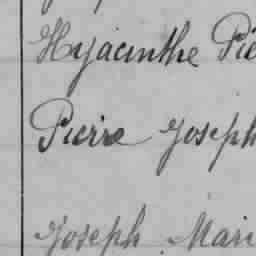 Hyacinthe Pie
Pierre Joseph
Joseph Mari